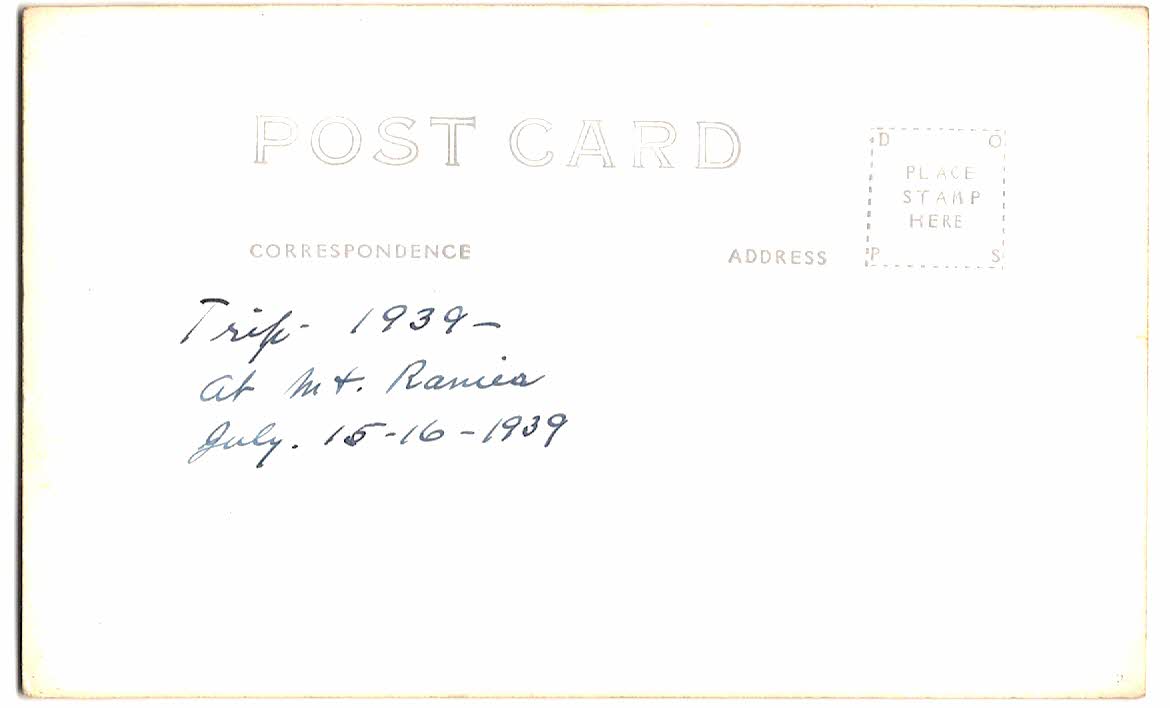 POST CARD
D O
PLACE
STAMP
HERE
P S
CORRESPONDENCE
ADDRESS
Trip - 1939 -
at Mt. Ranier
July. 15-16-1939